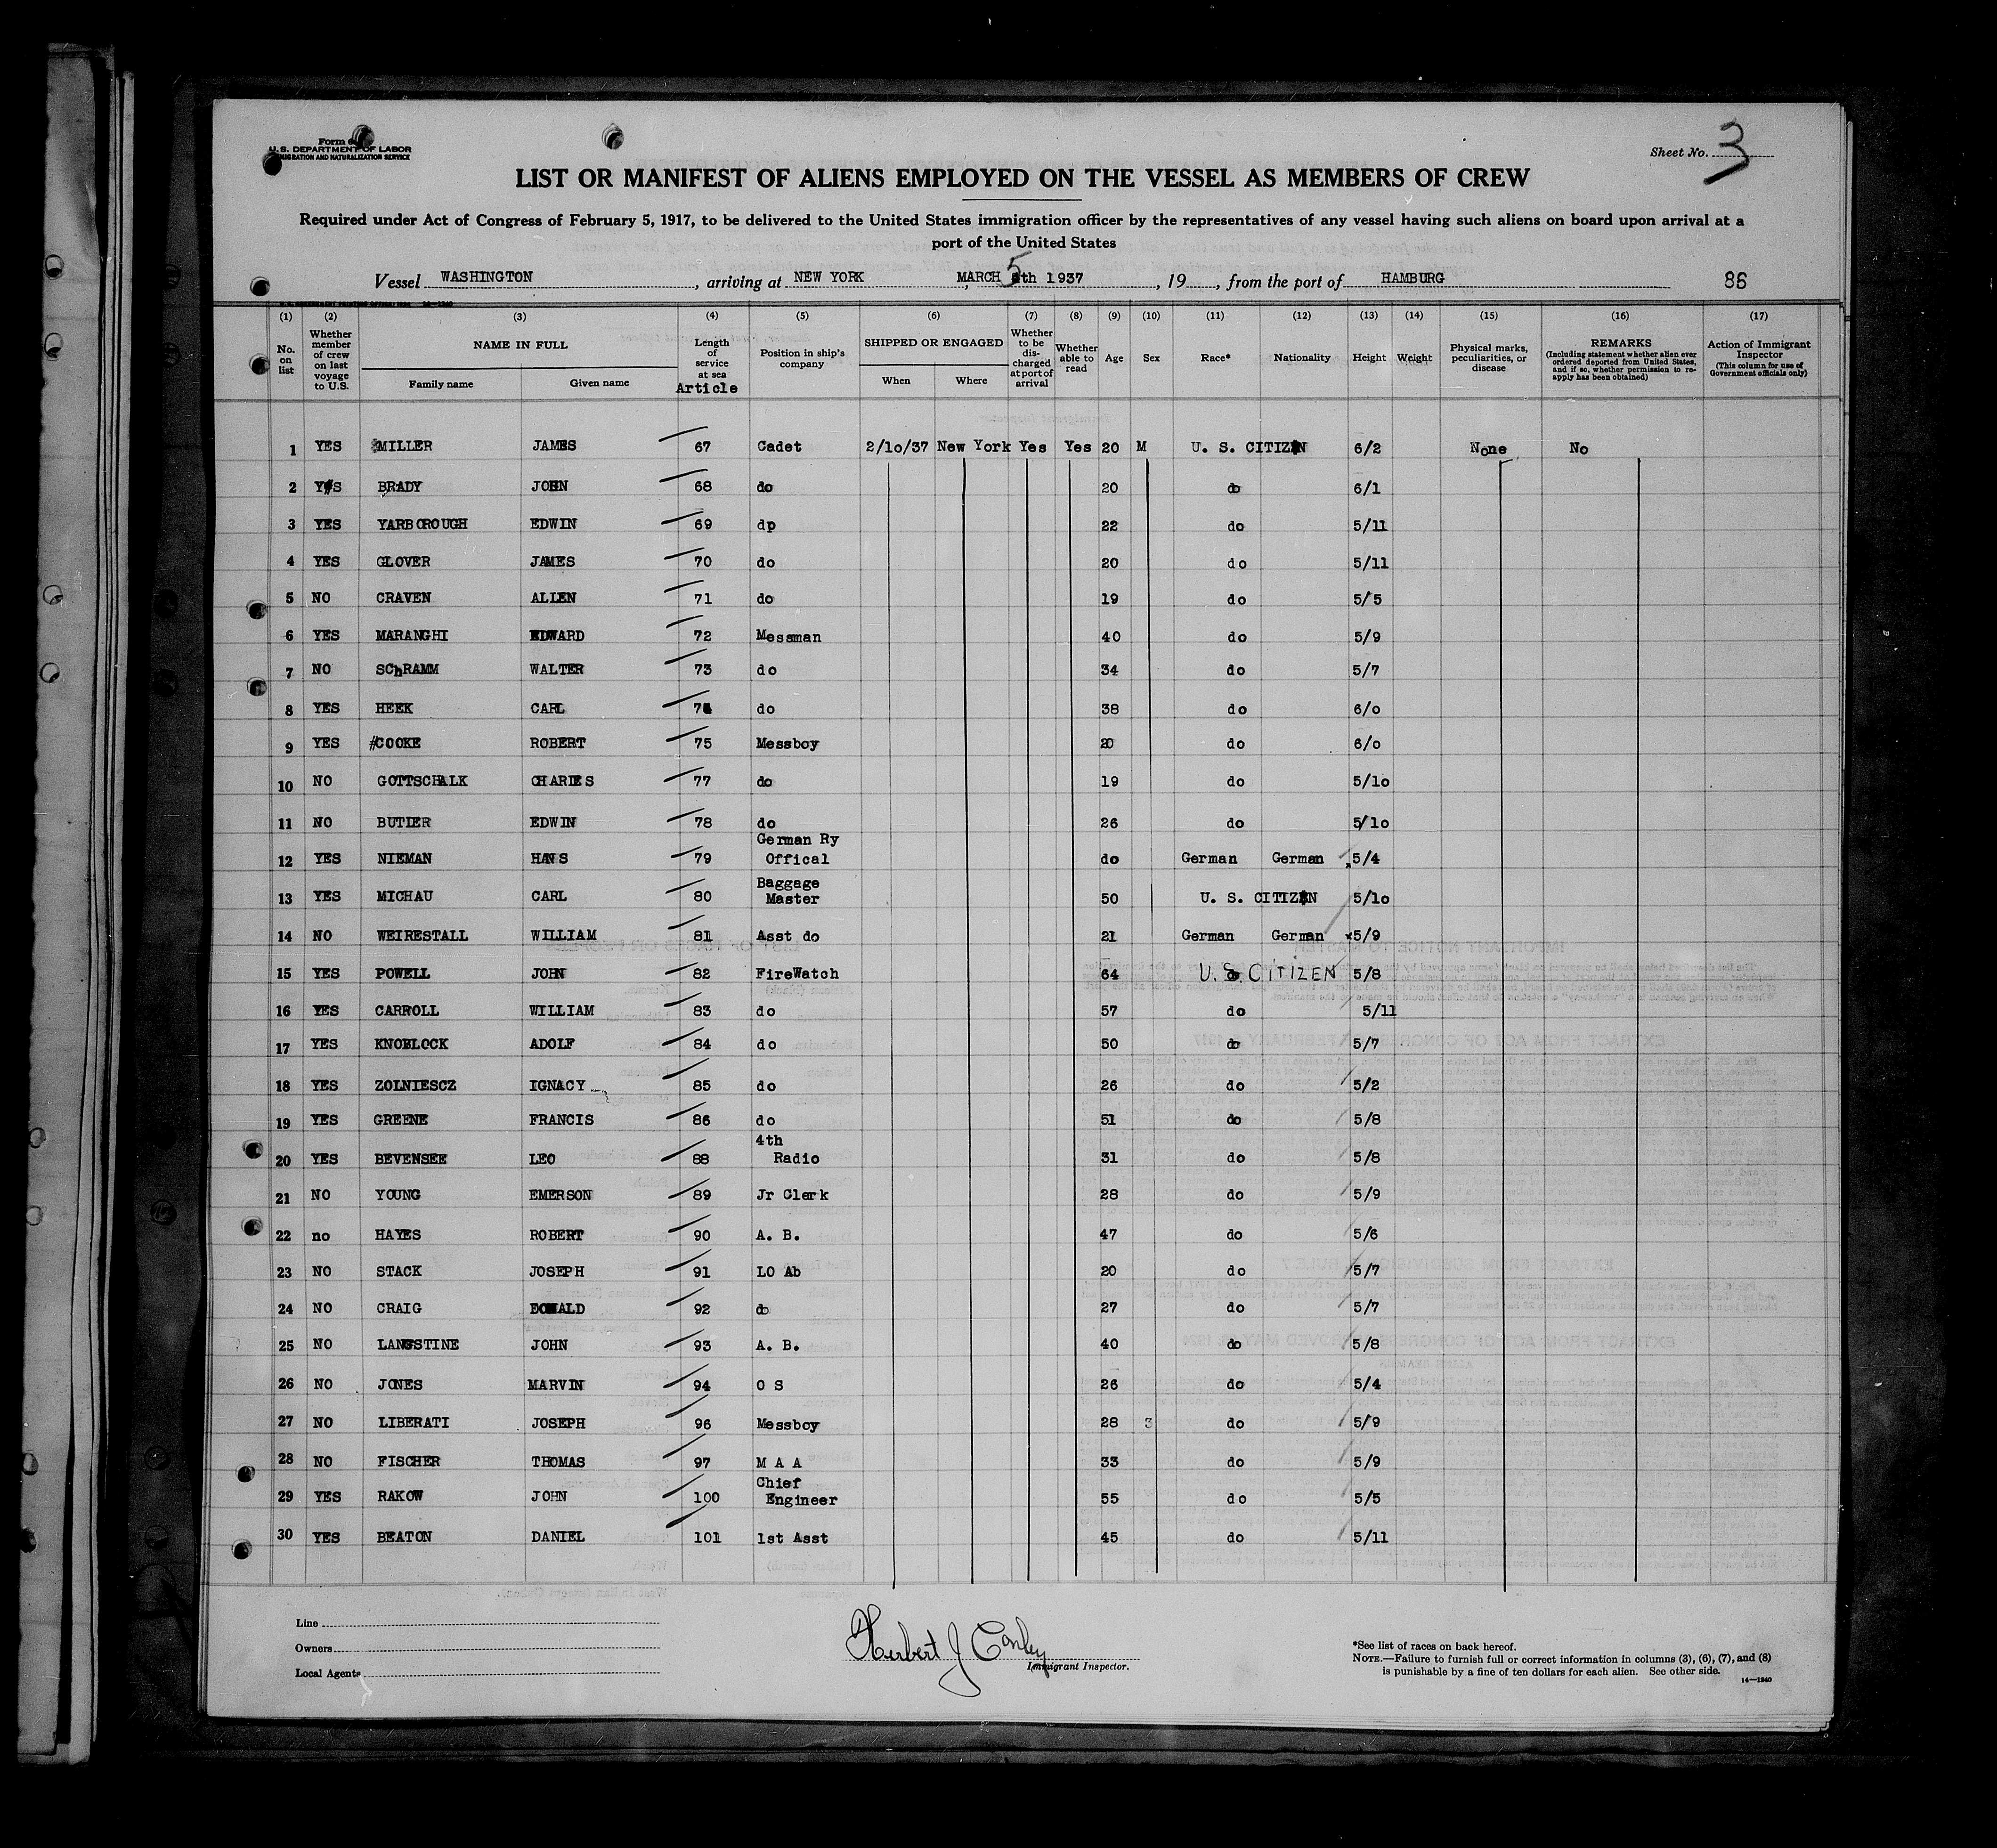 U.S. DEPARTMENT OF LABOR
IMMIGRATION AND NATURALIZATION SERVICE
Sheet No. 3
LIST OR MANIFEST OF ALIENS EMPLOYED ON THE VESSEL AS MEMBERS OF CREW
Required under Act of Congress of February 5, 1917, to be delivered to the United States immigration officer by the representatives of any vessel having such aliens on board upon arrival at a
port of the United States
Vessel WASHINGTON, arriving at NEW YORK, MARCH 5th 1937, 19, from the port of HAMBURG 86
(1) (2) (3) (4) (5) (6) (7) (8) (9) (10) (11) (12) (13) (14) (15) (16) (17)
No. on list
Whether member of crew on last voyage to U.S.
NAME IN FULL
Family name Given name
Length of service at sea
Article
Position in ship's company
SHIPPED OR ENGAGED
When Where
Whether to be discharged at port of arrival
Whether able to read
Age
Sex
Race*
Nationality
Height
Weight
Physical marks, peculiarities, or disease
REMARKS
(Including statement whether alien ever ordered deported from United States, and if so, whether permission to re-apply has been obtained)
Action of Immigrant Inspector
(This column for use of Government officials only)
1 YES MILLER JAMES 67 Cadet 2/10/37 New York Yes Yes 20 M U. S. CITIZEN 6/2 None No
2 YES BRADY JOHN 68 do 20 do 6/1
3 YES YARBOROUGH EDWIN 69 dp 22 do 5/11
4 YES GLOVER JAMES 70 do 20 do 5/11
5 NO CRAVEN ALLEN 71 do 19 do 5/5
6 YES MARANGHI EDWARD 72 Messman 40 do 5/9
7 NO SChRAMM WALTER 73 do 34 do 5/7
8 YES HEEK CARL 74 do 38 do 6/0
9 YES #COOKE ROBERT 75 Messboy 20 do 6/0
10 NO GOTTSCHALK CHARLES 77 do 19 do 5/10
11 NO BUTLER EDWIN 78 do 26 do 5/10
12 YES NIEMAN HANS 79 German Ry Offical do German German 5/4
13 YES MICHAU CARL 80 Baggage Master 50 U. S. CITIZEN 5/10
14 NO WEIRESTALL WILLIAM 81 Asst do 21 German German x5/9
15 YES POWELL JOHN 82 FireWatch 64 U.S. CITIZEN 5/8
16 YES CARROLL WILLIAM 83 do 57 do 5/11
17 YES KNOBLOCK ADOLF 84 do 50 do 5/7
18 YES ZOLNIESCZ IGNACY 85 do 26 do 5/2
19 YES GREENE FRANCIS 86 do 51 do 5/8
20 YES BEVENSEE LEO 88 4th Radio 31 do 5/8
21 NO YOUNG EMERSON 89 Jr Clerk 28 do 5/9
22 no HAYES ROBERT 90 A. B. 47 do 5/6
23 NO STACK JOSEPH 91 LO Ab 20 do 5/7
24 NO CRAIG DONALD 92 do 27 do 5/7
25 NO LANGSTINE JOHN 93 A. B. 40 do 5/8
26 NO JONES MARVIN 94 O S 26 do 5/4
27 NO LIBERATI JOSEPH 96 Messboy 28 3 do 5/9
28 NO FISCHER THOMAS 97 M A A 33 do 5/9
29 YES RAKOW JOHN 100 Chief Engineer 55 do 5/5
30 YES BEATON DANIEL 101 1st Asst 45 do 5/11
Line
Owners
Local Agents
Herbert J Conley
Immigrant Inspector.
*See list of races on back hereof.
NOTE.—Failure to furnish full or correct information in columns (3), (6), (7), and (8)
is punishable by a fine of ten dollars for each alien. See other side.
14—1240